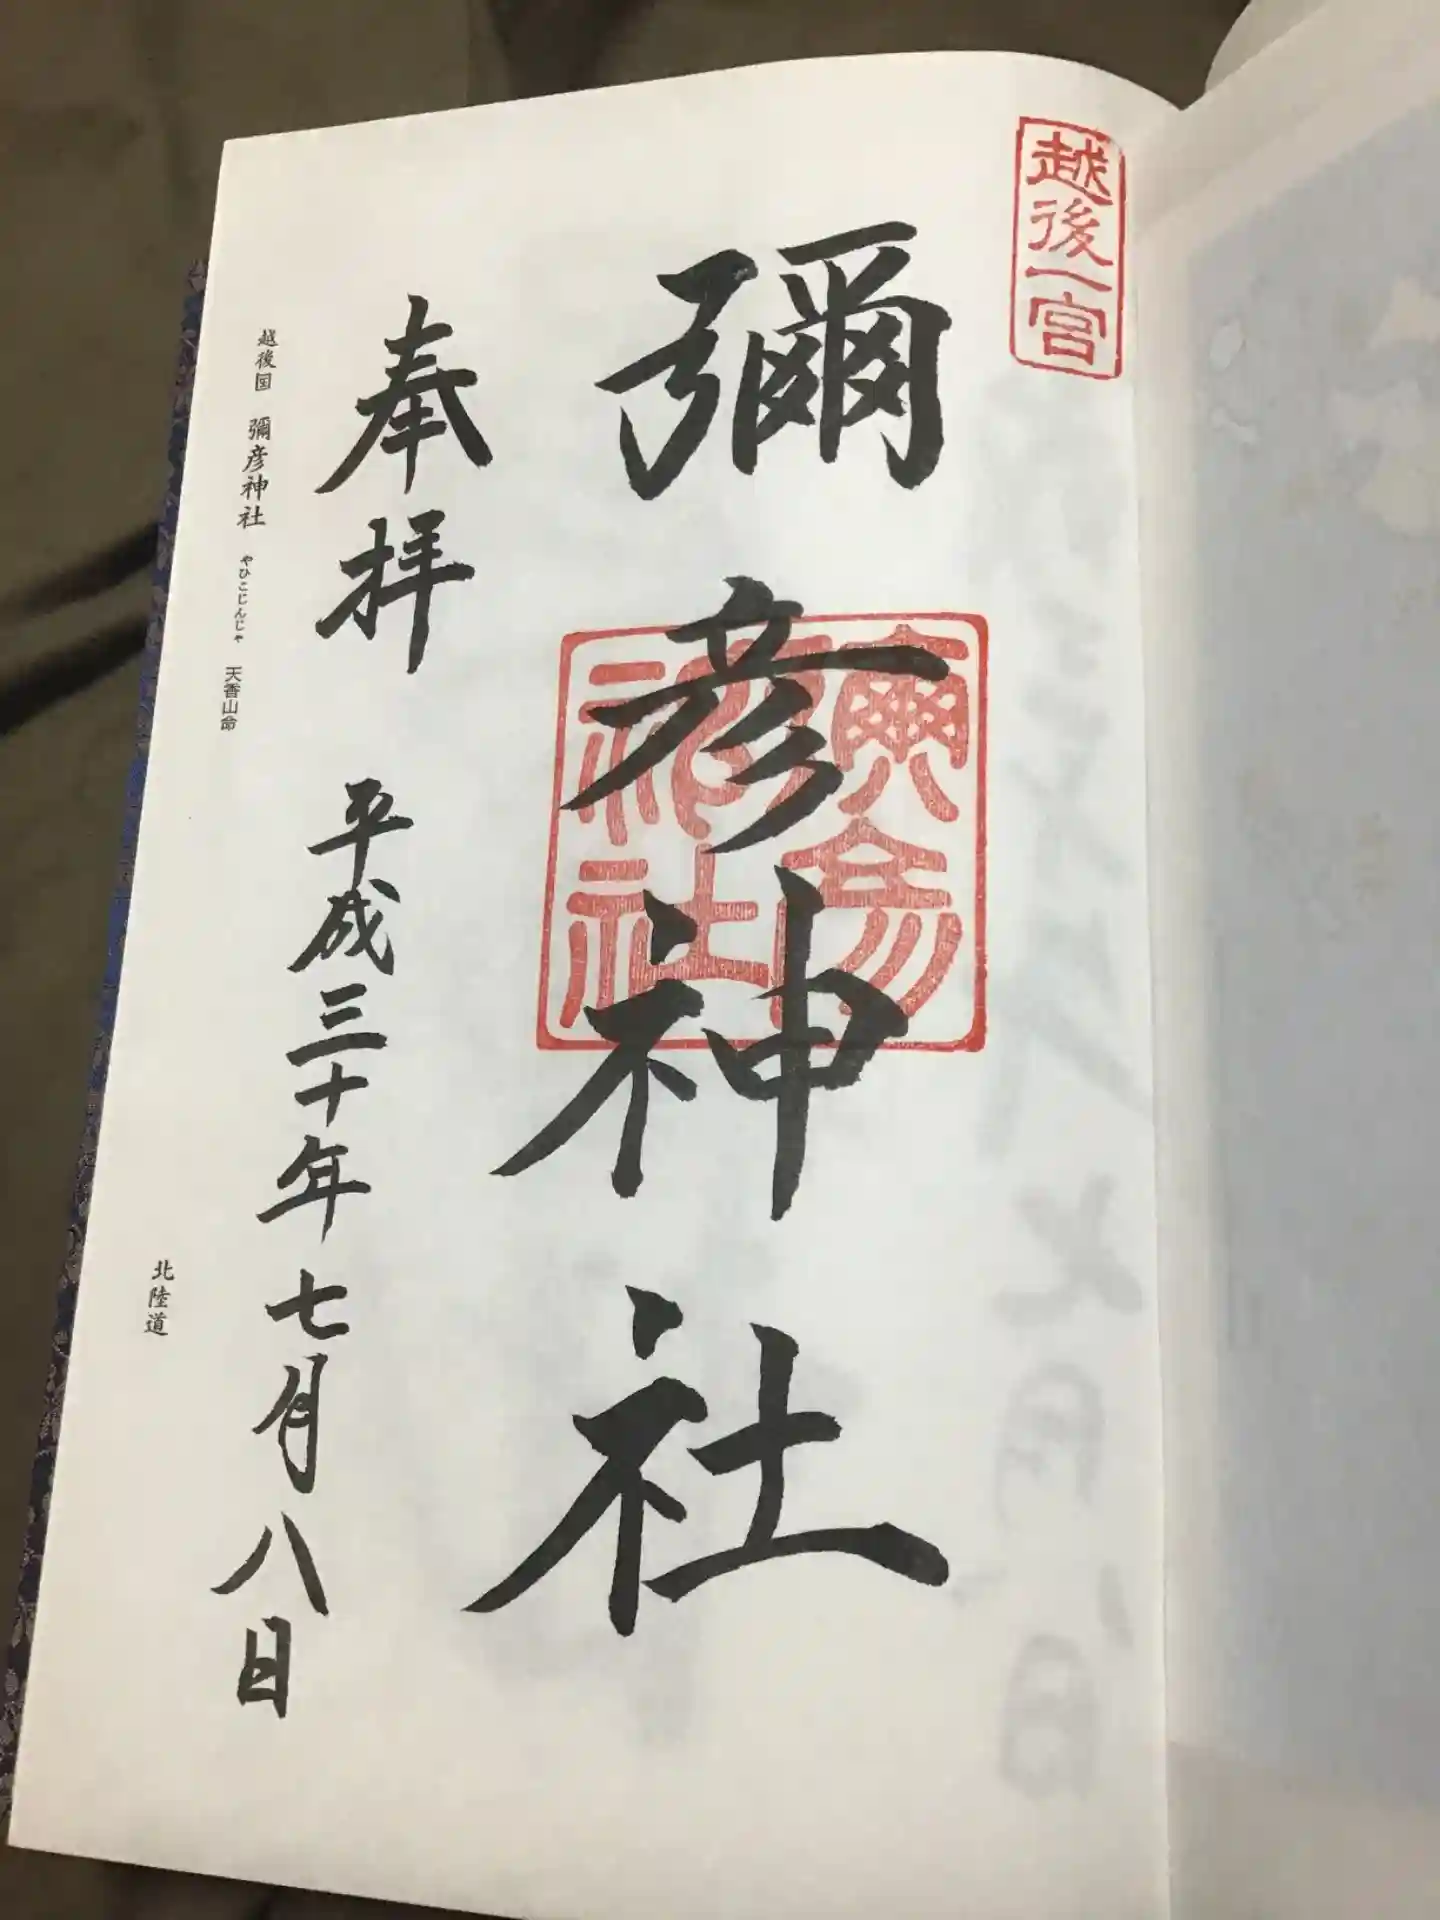 越後一宮
彌彦神社
彌彦神社
奉拝
平成三十年七月八日
越後国 彌彦神社 やひこじんじゃ 天香山命
北陸道